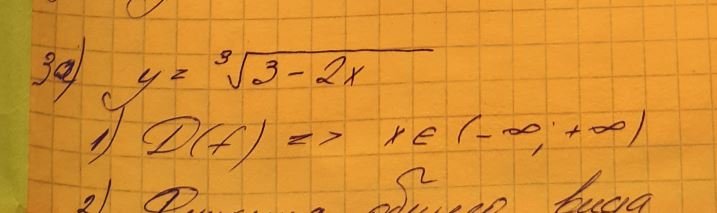 3a) y = ∛(3 - 2x)
1) D(f) => x ∈ (-∞; +∞)
2) общего вида